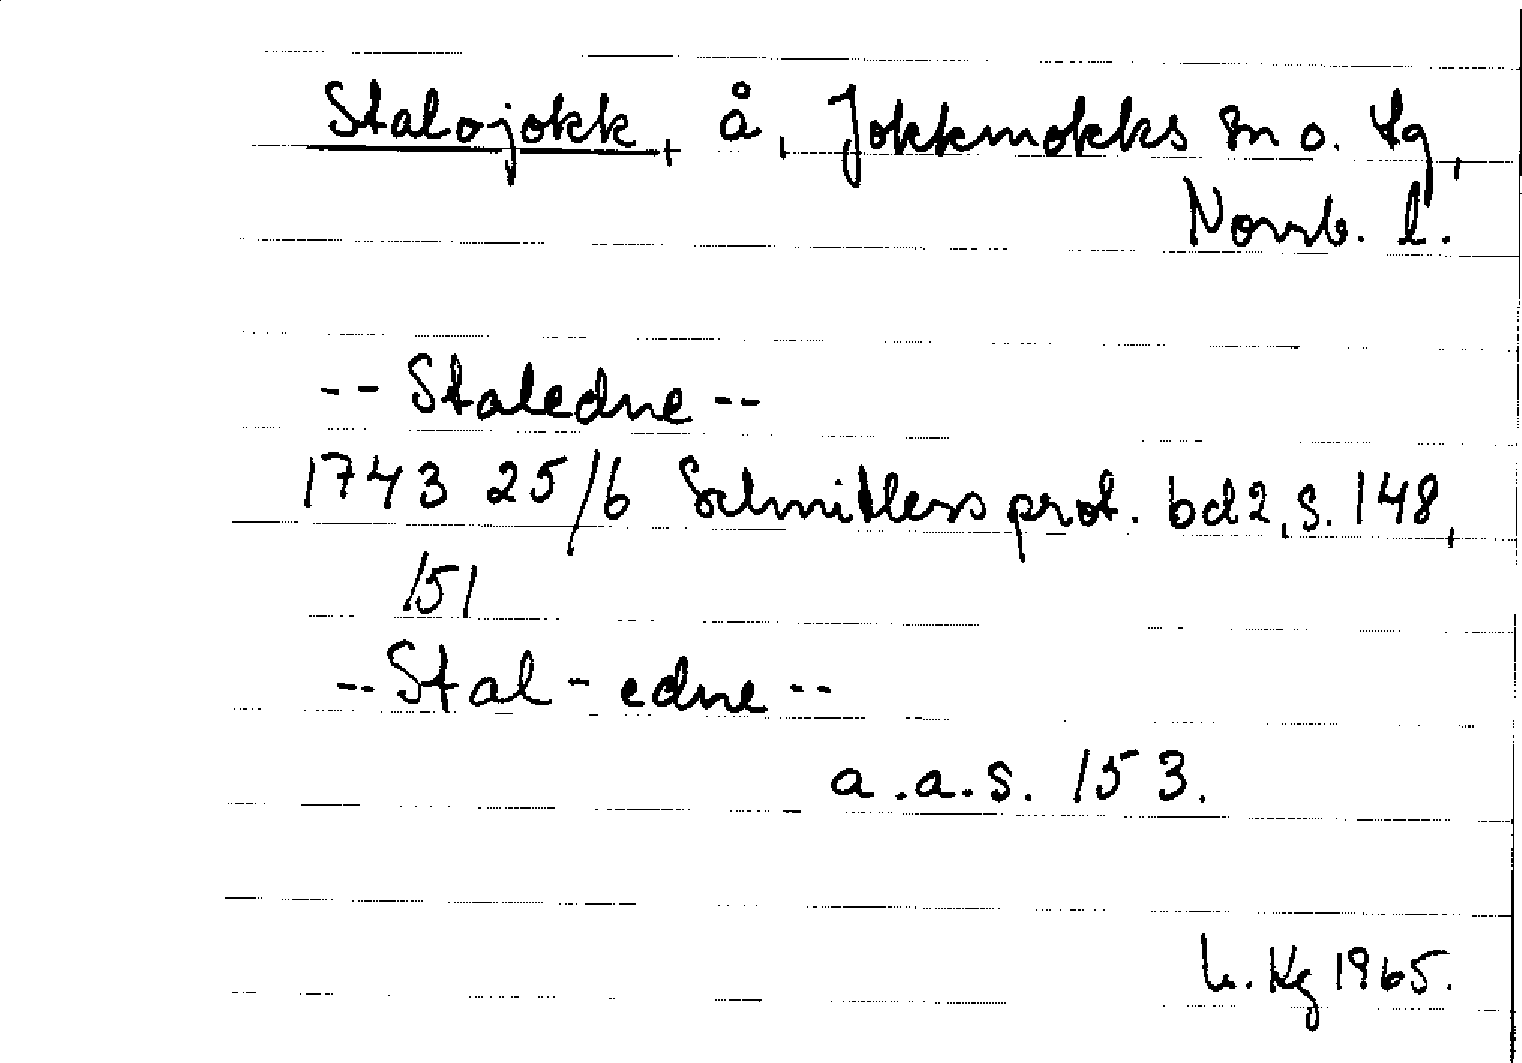 Stalojokk, å, Jokkmokks sn o. tg,
Norrb. l.
-- Staledne --
1743 25/6 Schnitlers prot. bd 2, s. 148,
151
-- Stal-edne --
a.a.s. 153.
Kg 1965.